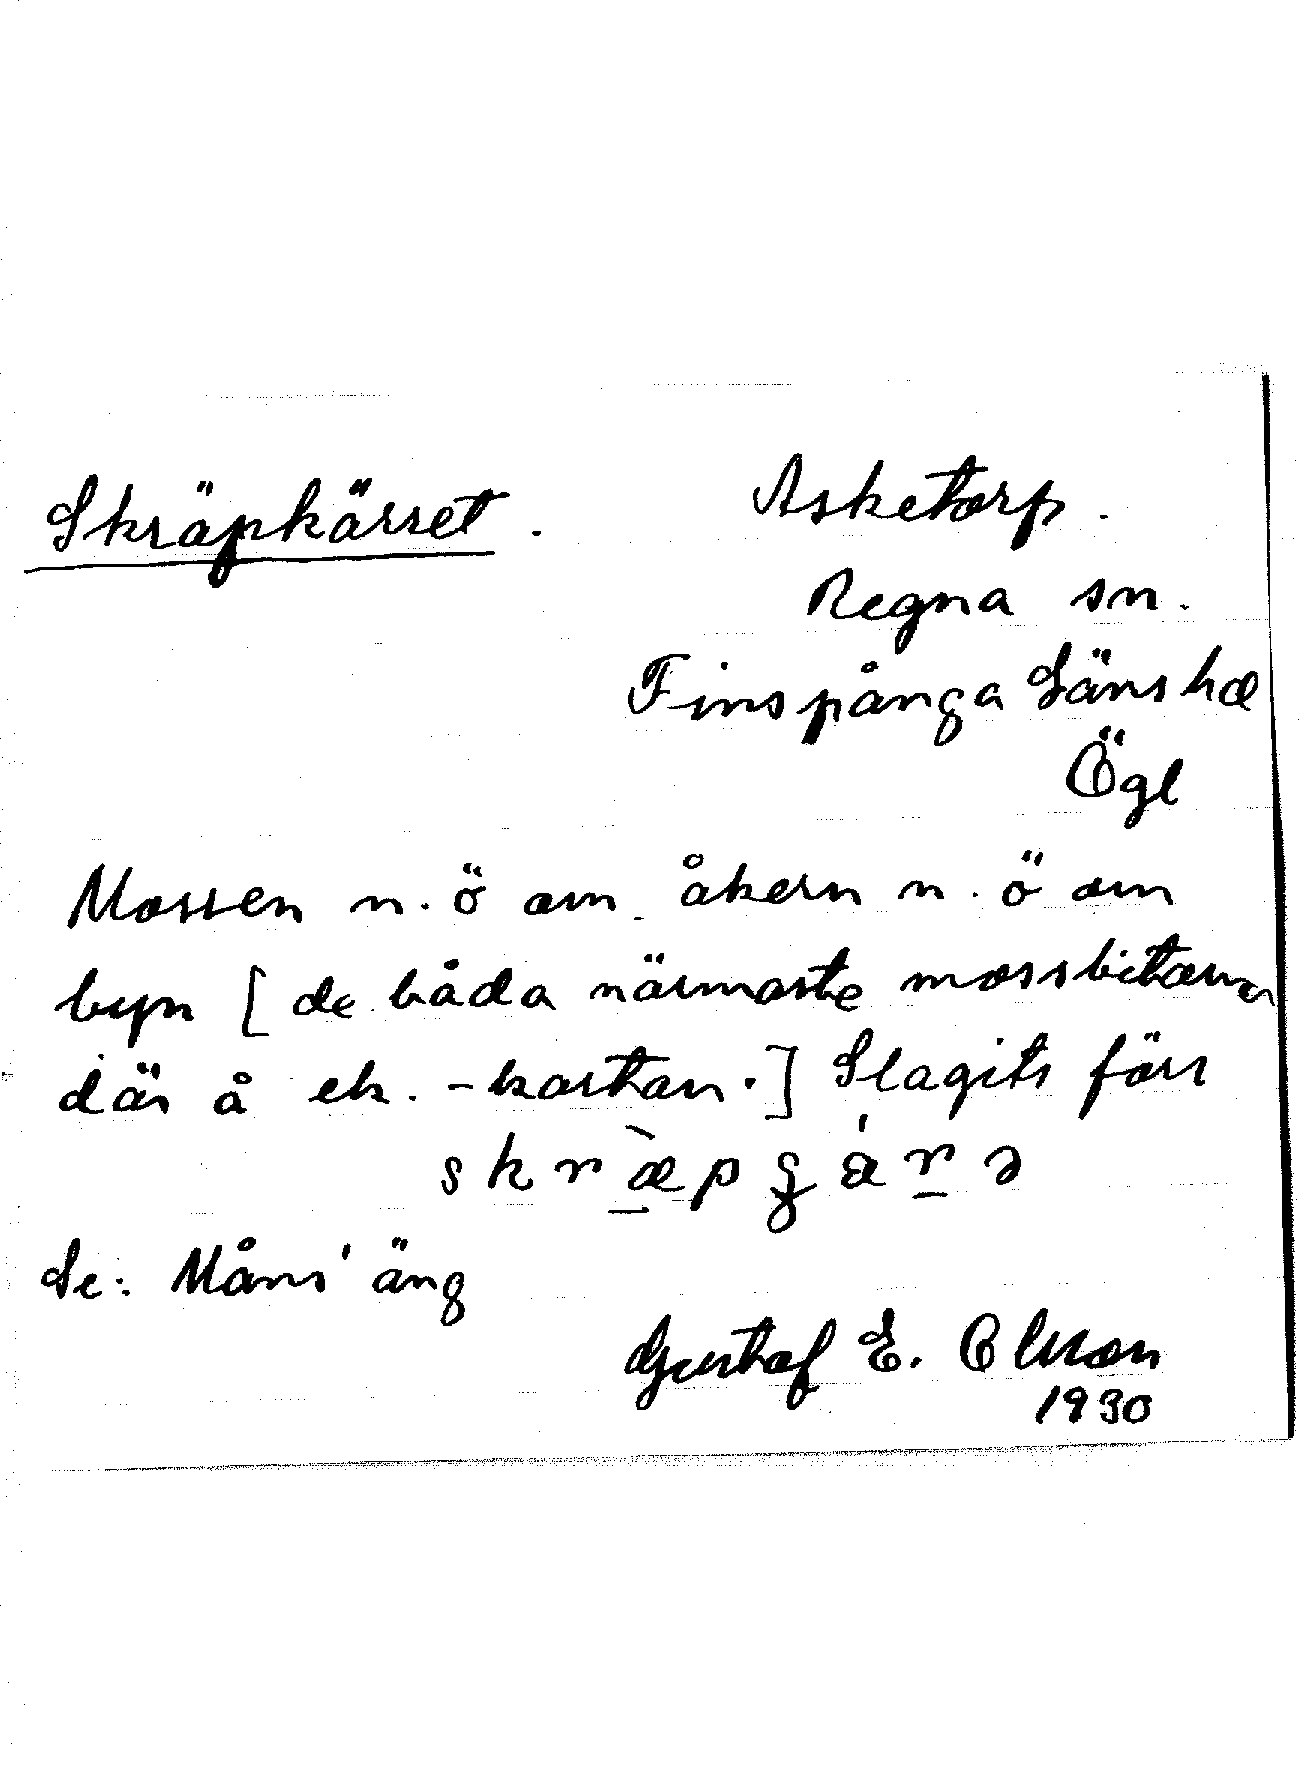 Skräpkärret.
Asketorp.
Regna sn.
Finspånga Läns hd
Ögl
Mossen n.ö om åkern n.ö om
byn [de båda närmaste mossbitarna
där å ek.-kartan.] Slagits förr
Se: Måns' äng
Gustaf E. Olsson
1930